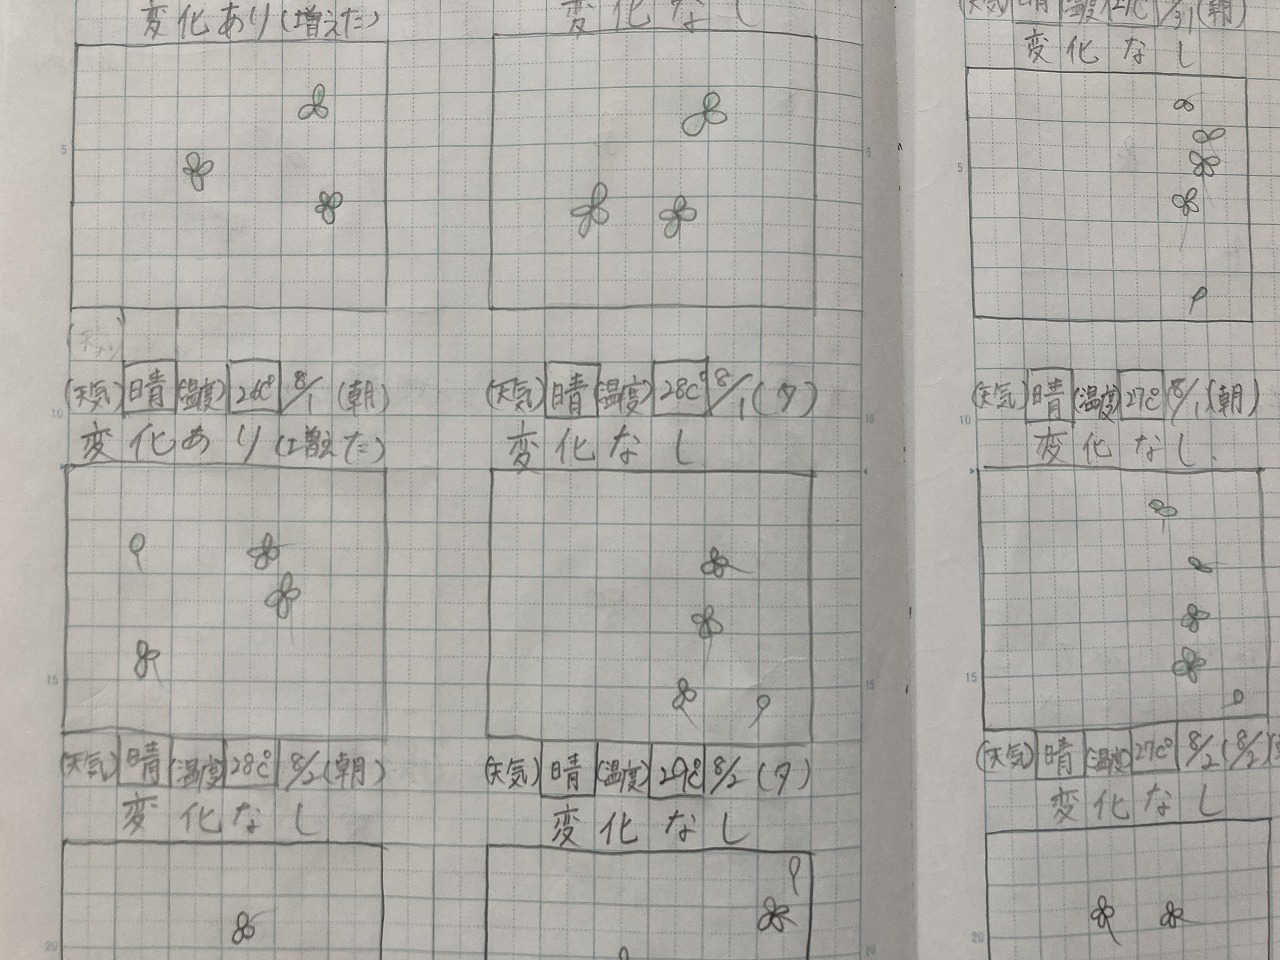 変化あり(増えた)
変化なし
5
5
(天気)晴(温度)26C° 8/1(朝)
(天気)晴(温度)28C° 8/1(夕)
10
10
変化あり(増えた)
変化なし
15
15
(天気)晴(温度)28C° 8/2(朝)
(天気)晴(温度)29C° 8/2(夕)
変化なし
変化なし
20
20
(天気)晴(温度)27C° 7/31(朝)
変化なし
5
(天気)晴(温度)27C° 8/1(朝)
10
変化なし.
15
(天気)晴(温度)27C° 8/2(8/2)
変化なし
20